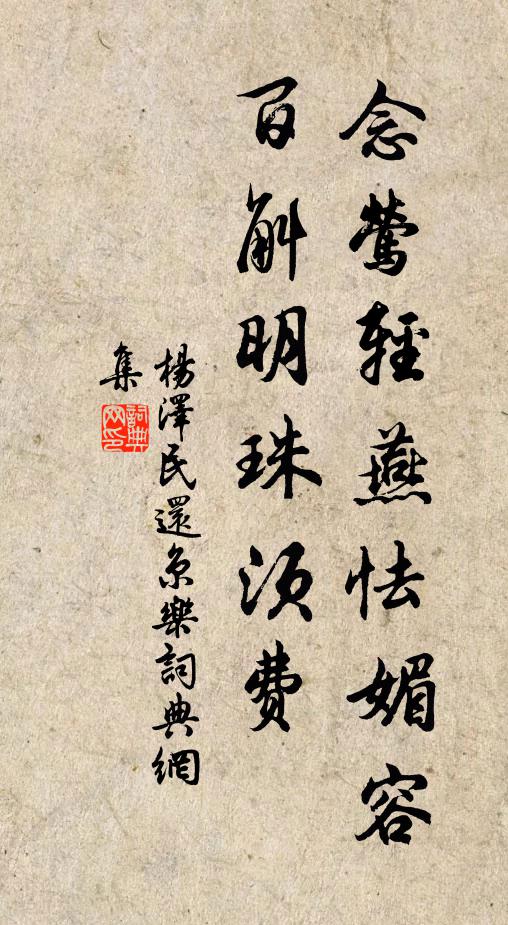 念鶯輕燕怯媚容
百斛明珠須費
楊澤民還京樂詞典網
集
詞典网印